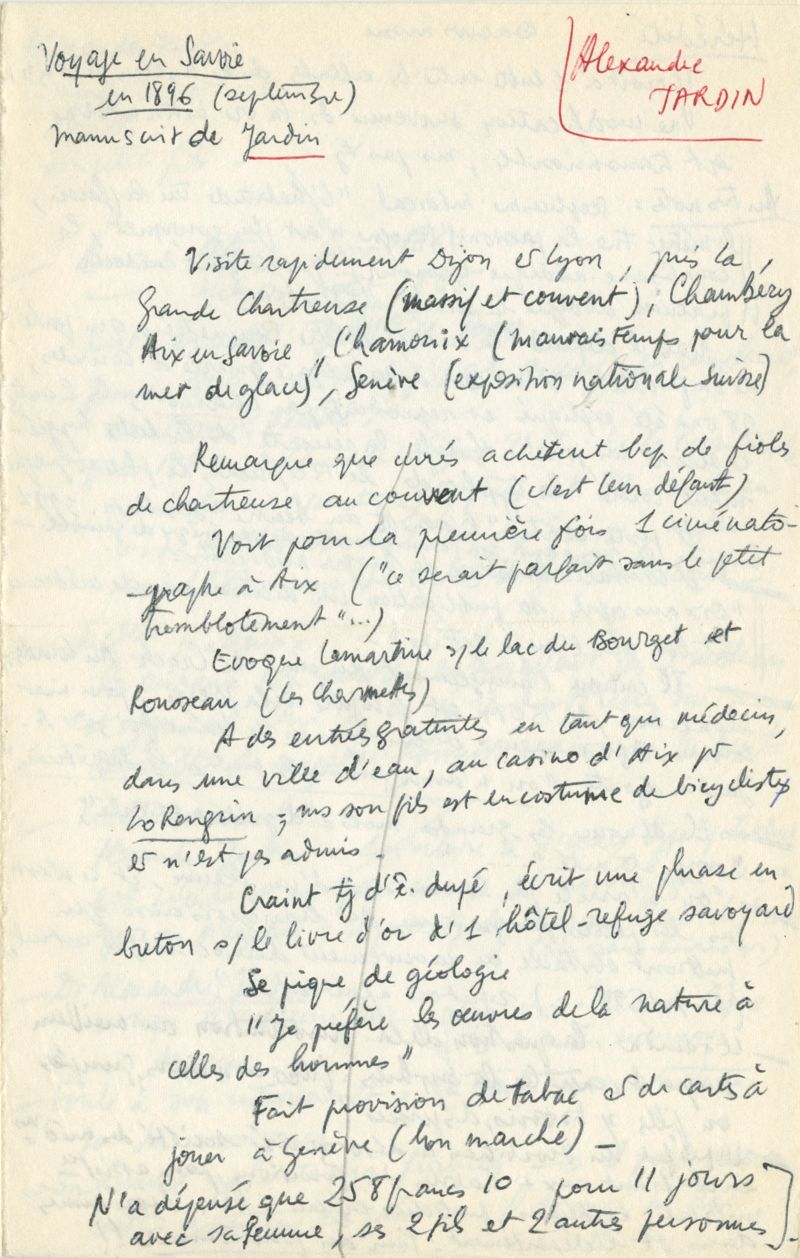 Voyage en Savoie
en 1896 (septembre)
manuscrit de Jardin
Alexandre
JARDIN
Visite rapidement Dijon et Lyon, puis la
Grande Chartreuse (massif et couvent), Chambéry
Aix en Savoie, Chamonix (mauvais temps pour la
mer de glace), Genève (exposition nationale suisse)
Remarque que curés achètent bcp de fioles
de chartreuse au couvent (c'est leur défaut)
Voit pour la première fois 1 cinémato-
-graphe à Aix ("ce serait parfait sans le petit
tremblotement"...)
Evoque Lamartine s/ le lac du Bourget et
Rousseau (les Charmettes)
A des entrées gratuites en tant que médecin,
dans une ville d'eau, au casino d'Aix pr
Lohengrin; ms son fils est en costume de bicycliste
et n'est pas admis -
Craint tj d'ê. dupé, écrit une phrase en
breton s/ le livre d'or d'1 hôtel-refuge savoyard
Se pique de géologie
"Je préfère les œuvres de la nature à
celles des hommes"
Fait provision de tabac et de cartes à
jouer à Genève (bon marché) -
N'a dépensé que 258 francs 10 pour 11 jours
avec sa femme, ses 2 fils et 2 autres personnes -